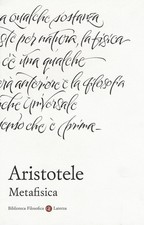 a qualche sostanza
ste per natura, la fisica
c'è una qualche
erà anteriore e la filosofia
che universale
emo che è prima
Aristotele
Metafisica
Biblioteca Filosofica Laterza